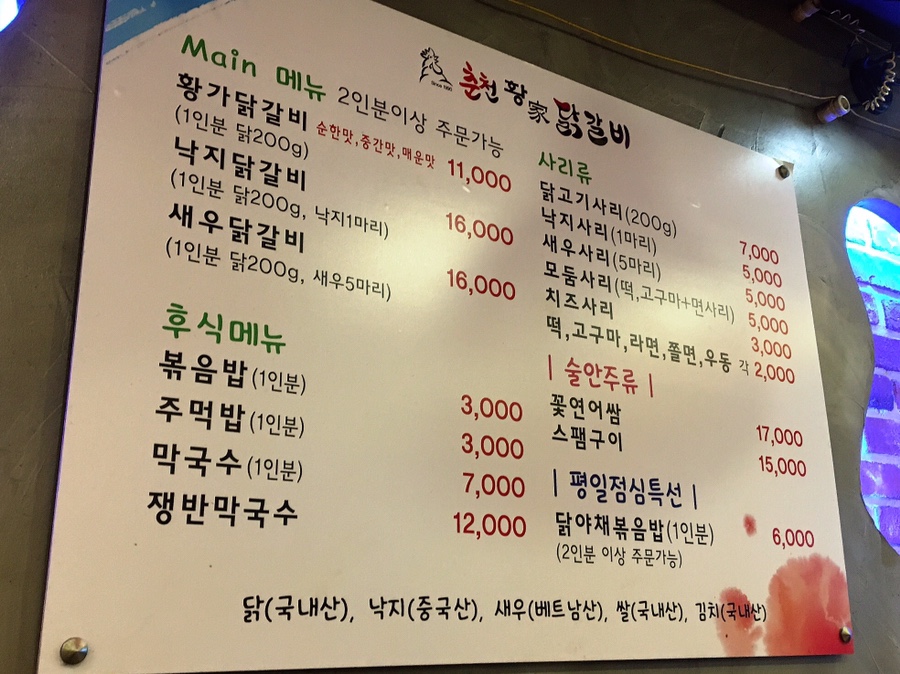 춘천 황家 닭갈비
Since 1990
Main 메뉴 2인분이상 주문가능
황가닭갈비 순한맛,중간맛,매운맛 11,000
(1인분 닭200g)
낙지닭갈비 16,000
(1인분 닭200g, 낙지1마리)
새우닭갈비 16,000
(1인분 닭200g, 새우5마리)
후식메뉴
볶음밥(1인분) 3,000
주먹밥(1인분) 3,000
막국수(1인분) 7,000
쟁반막국수 12,000
사리류
닭고기사리(200g) 7,000
낙지사리(1마리) 5,000
새우사리(5마리) 5,000
모둠사리(떡,고구마+면사리) 5,000
치즈사리 3,000
떡,고구마,라면,쫄면,우동 각 2,000
| 술안주류 |
꽃연어쌈 17,000
스팸구이 15,000
| 평일점심특선 |
닭야채볶음밥(1인분) 6,000
(2인분 이상 주문가능)
닭(국내산), 낙지(중국산), 새우(베트남산), 쌀(국내산), 김치(국내산)